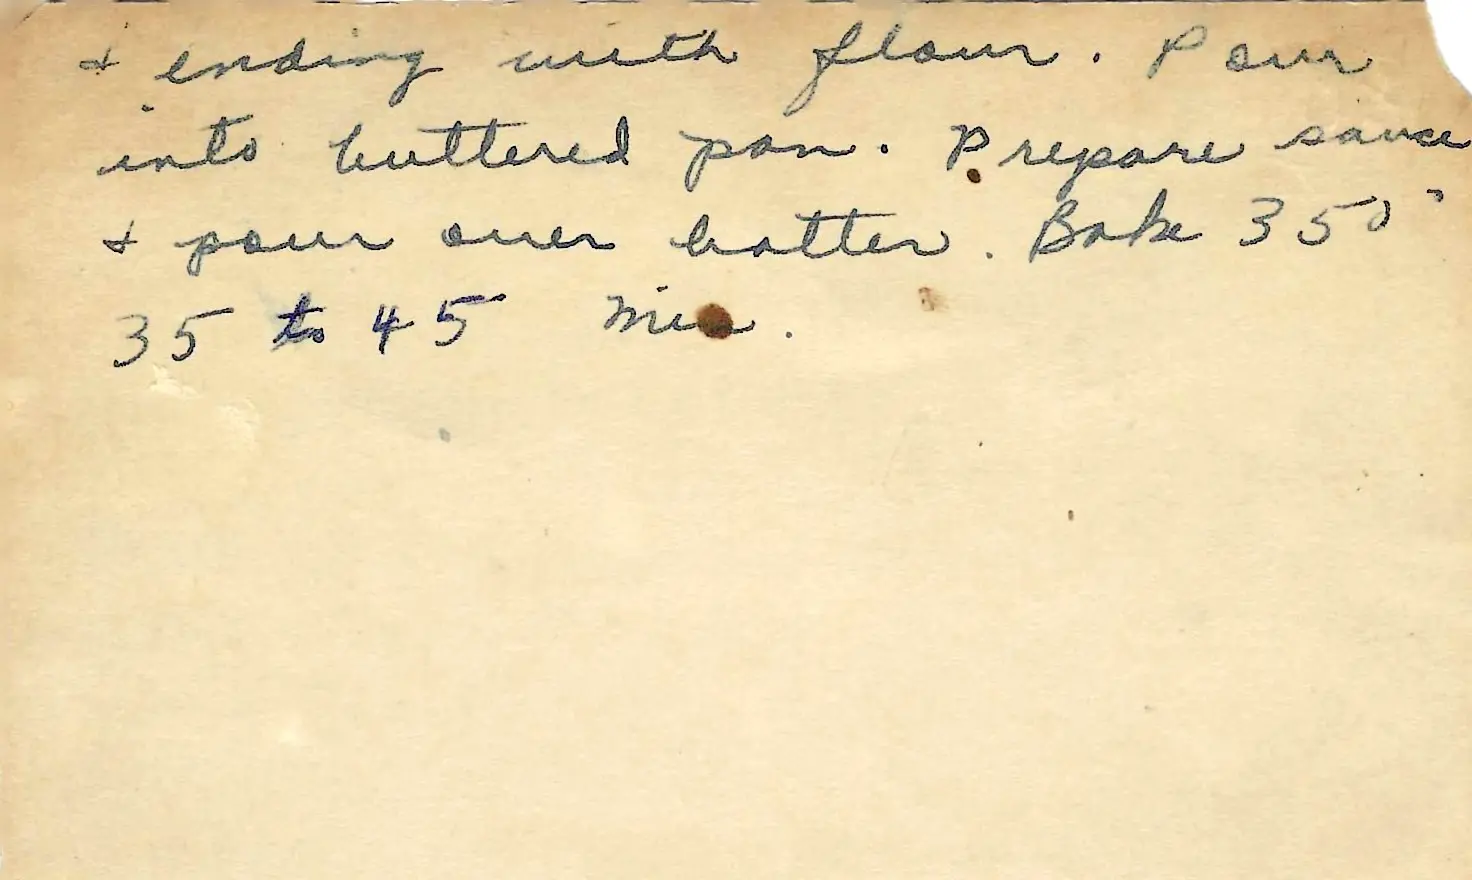 & ending with flour. Pour
into buttered pan. Prepare sauce
& pour over batter. Bake 350°
35 to 45 Min.